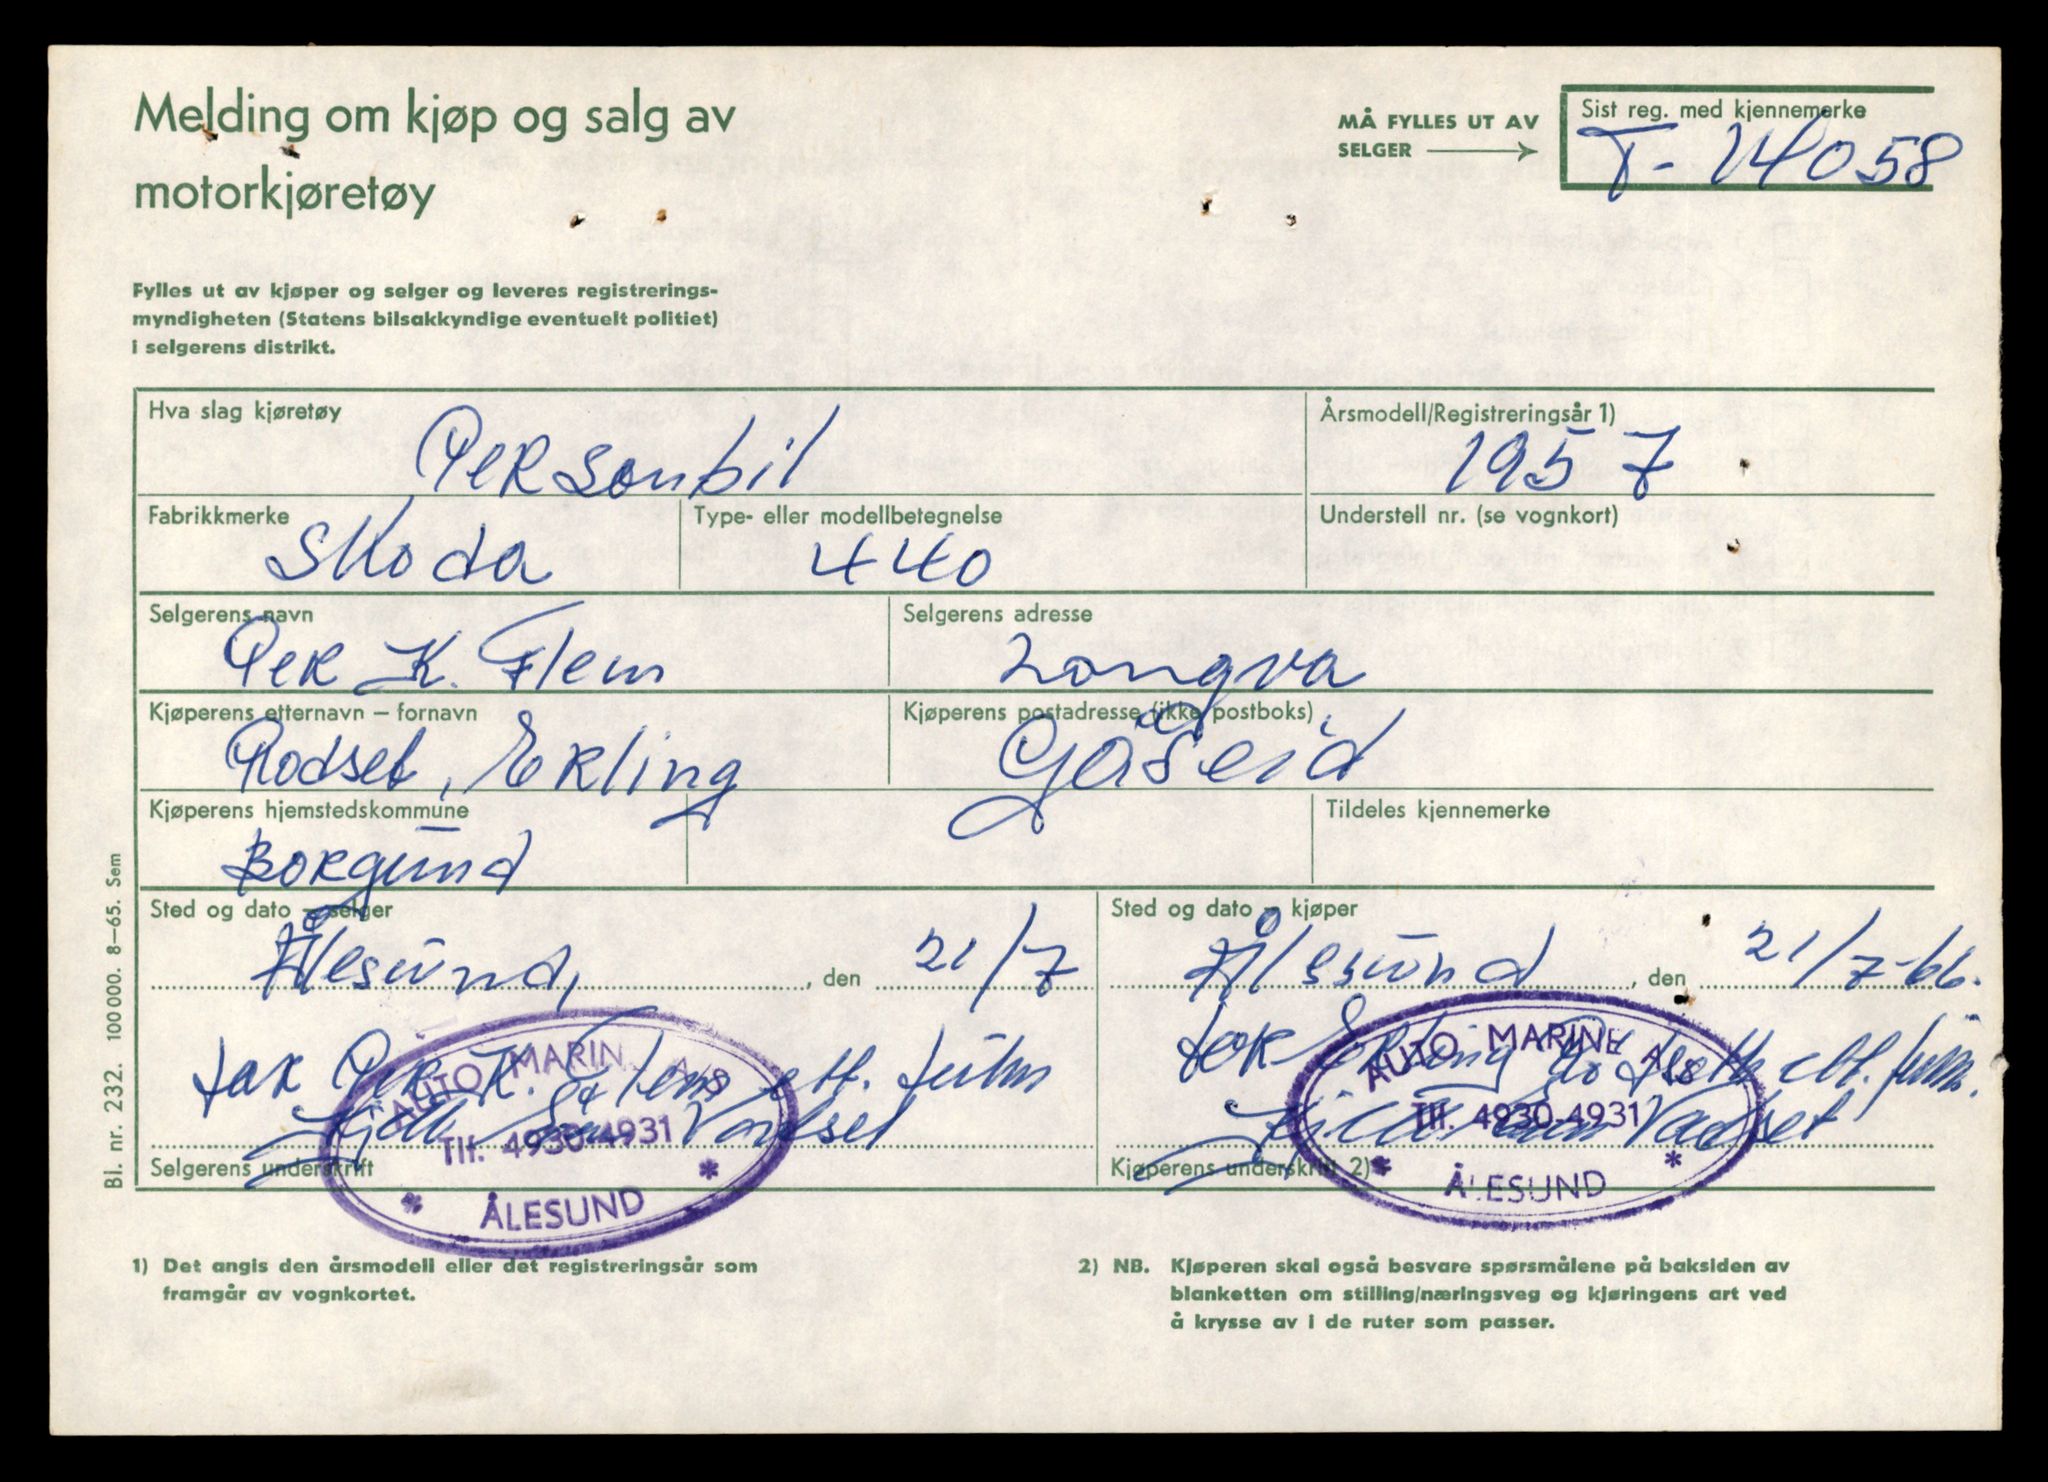 Melding om kjøp og salg av
motorkjøretøy
MÅ FYLLES UT AV
SELGER
Sist reg. med kjennemerke
T- 14058
Fylles ut av kjøper og selger og leveres registrerings-
myndigheten (Statens bilsakkyndige eventuelt politiet)
i selgerens distrikt.
Hva slag kjøretøy
Personbil
Årsmodell/Registreringsår 1)
1957
Fabrikkmerke
Skoda
Type- eller modellbetegnelse
440
Understell nr. (se vognkort)
Selgerens navn
Per K. Flem
Selgerens adresse
Longva
Kjøperens etternavn – fornavn
Rodset, Erling
Kjøperens postadresse (ikke postboks)
Gåseid
Kjøperens hjemstedskommune
Borgund
Tildeles kjennemerke
Sted og dato – selger
Ålesund, den 21/7
Sted og dato – kjøper
Ålesund, den 21/7-66.
for Per K. Flem
Selgerens underskrift
AUTO MARIN A/S
Tlf. 4930-4931
ÅLESUND
for Erling
Kjøperens underskrift 2)
AUTO MARINE A/S
Tlf. 4930-4931
ÅLESUND
1) Det angis den årsmodell eller det registreringsår som
framgår av vognkortet.
2) NB. Kjøperen skal også besvare spørsmålene på baksiden av
blanketten om stilling/næringsveg og kjøringens art ved
å krysse av i de ruter som passer.
Bl. nr. 232. 100 000. 8–65. Sem